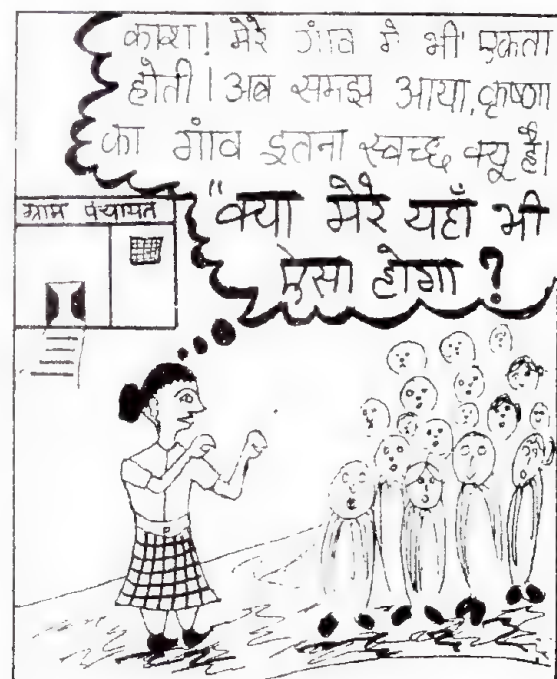 काश! मेरे गांव मे भी एकता
होती। अब समझ आया, कृष्णा
का गांव इतना स्वच्छ क्यू है।
"क्या मेरे यहाँ भी
ऐसा होगा?
ग्राम पंचायत